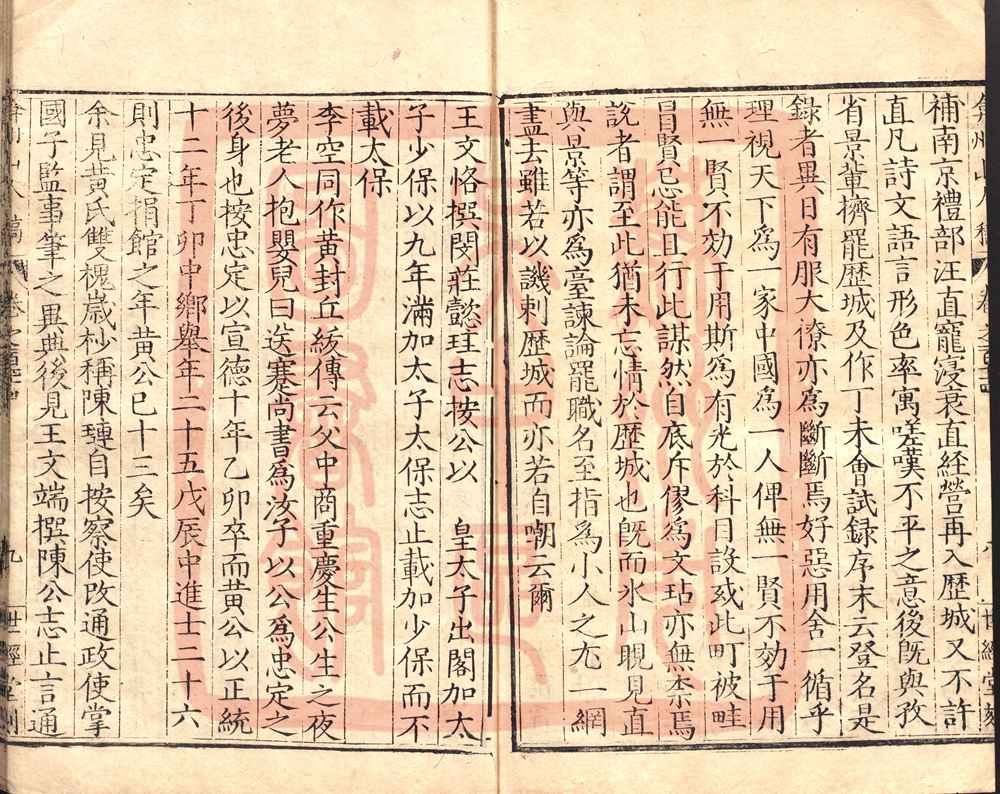 補南京禮部汪直寵寖衰直經營再入歷城又不許
直凡詩文語言形色率寓嗟嘆不平之意後旣與孜
省景輩擠罷歷城及作丁未會試録序末云登名是
録者異日有服大僚亦爲斷斷焉好惡用舍一循乎
理視天下爲一家中國爲一人俾無一賢不効于用
無一賢不効于用斯爲有光於科目設或此町彼畦
冒賢忌能且行此謀然自底斥僇爲文玷亦無柰焉
說者謂至此猶未忘情於歷城也旣而氷山見直
與景等亦爲臺諫論罷職名至指爲小人之尢一網
盡去雖若以譏刺歷城而亦若自嘲云爾
王文恪撰閔莊懿珪志按公以 皇太子出閣加太
子少保以九年滿加太子太保志止載加少保而不
載太保
李空同作黄封丘紱傳云父中商重慶生公生之夜
夢老人抱嬰兒曰送蹇尚書爲汝子以公爲忠定之
後身也按忠定以宣德十年乙卯卒而黄公以正統
十二年丁卯中鄉舉年二十五戊辰中進士二十六
則忠定捐館之年黄公已十三矣
余見黄氏雙槐歲杪稱陳璉自按察使改通政使掌
國子監事筆之異典後見王文端撰陳公志止言通
九 世經堂刻